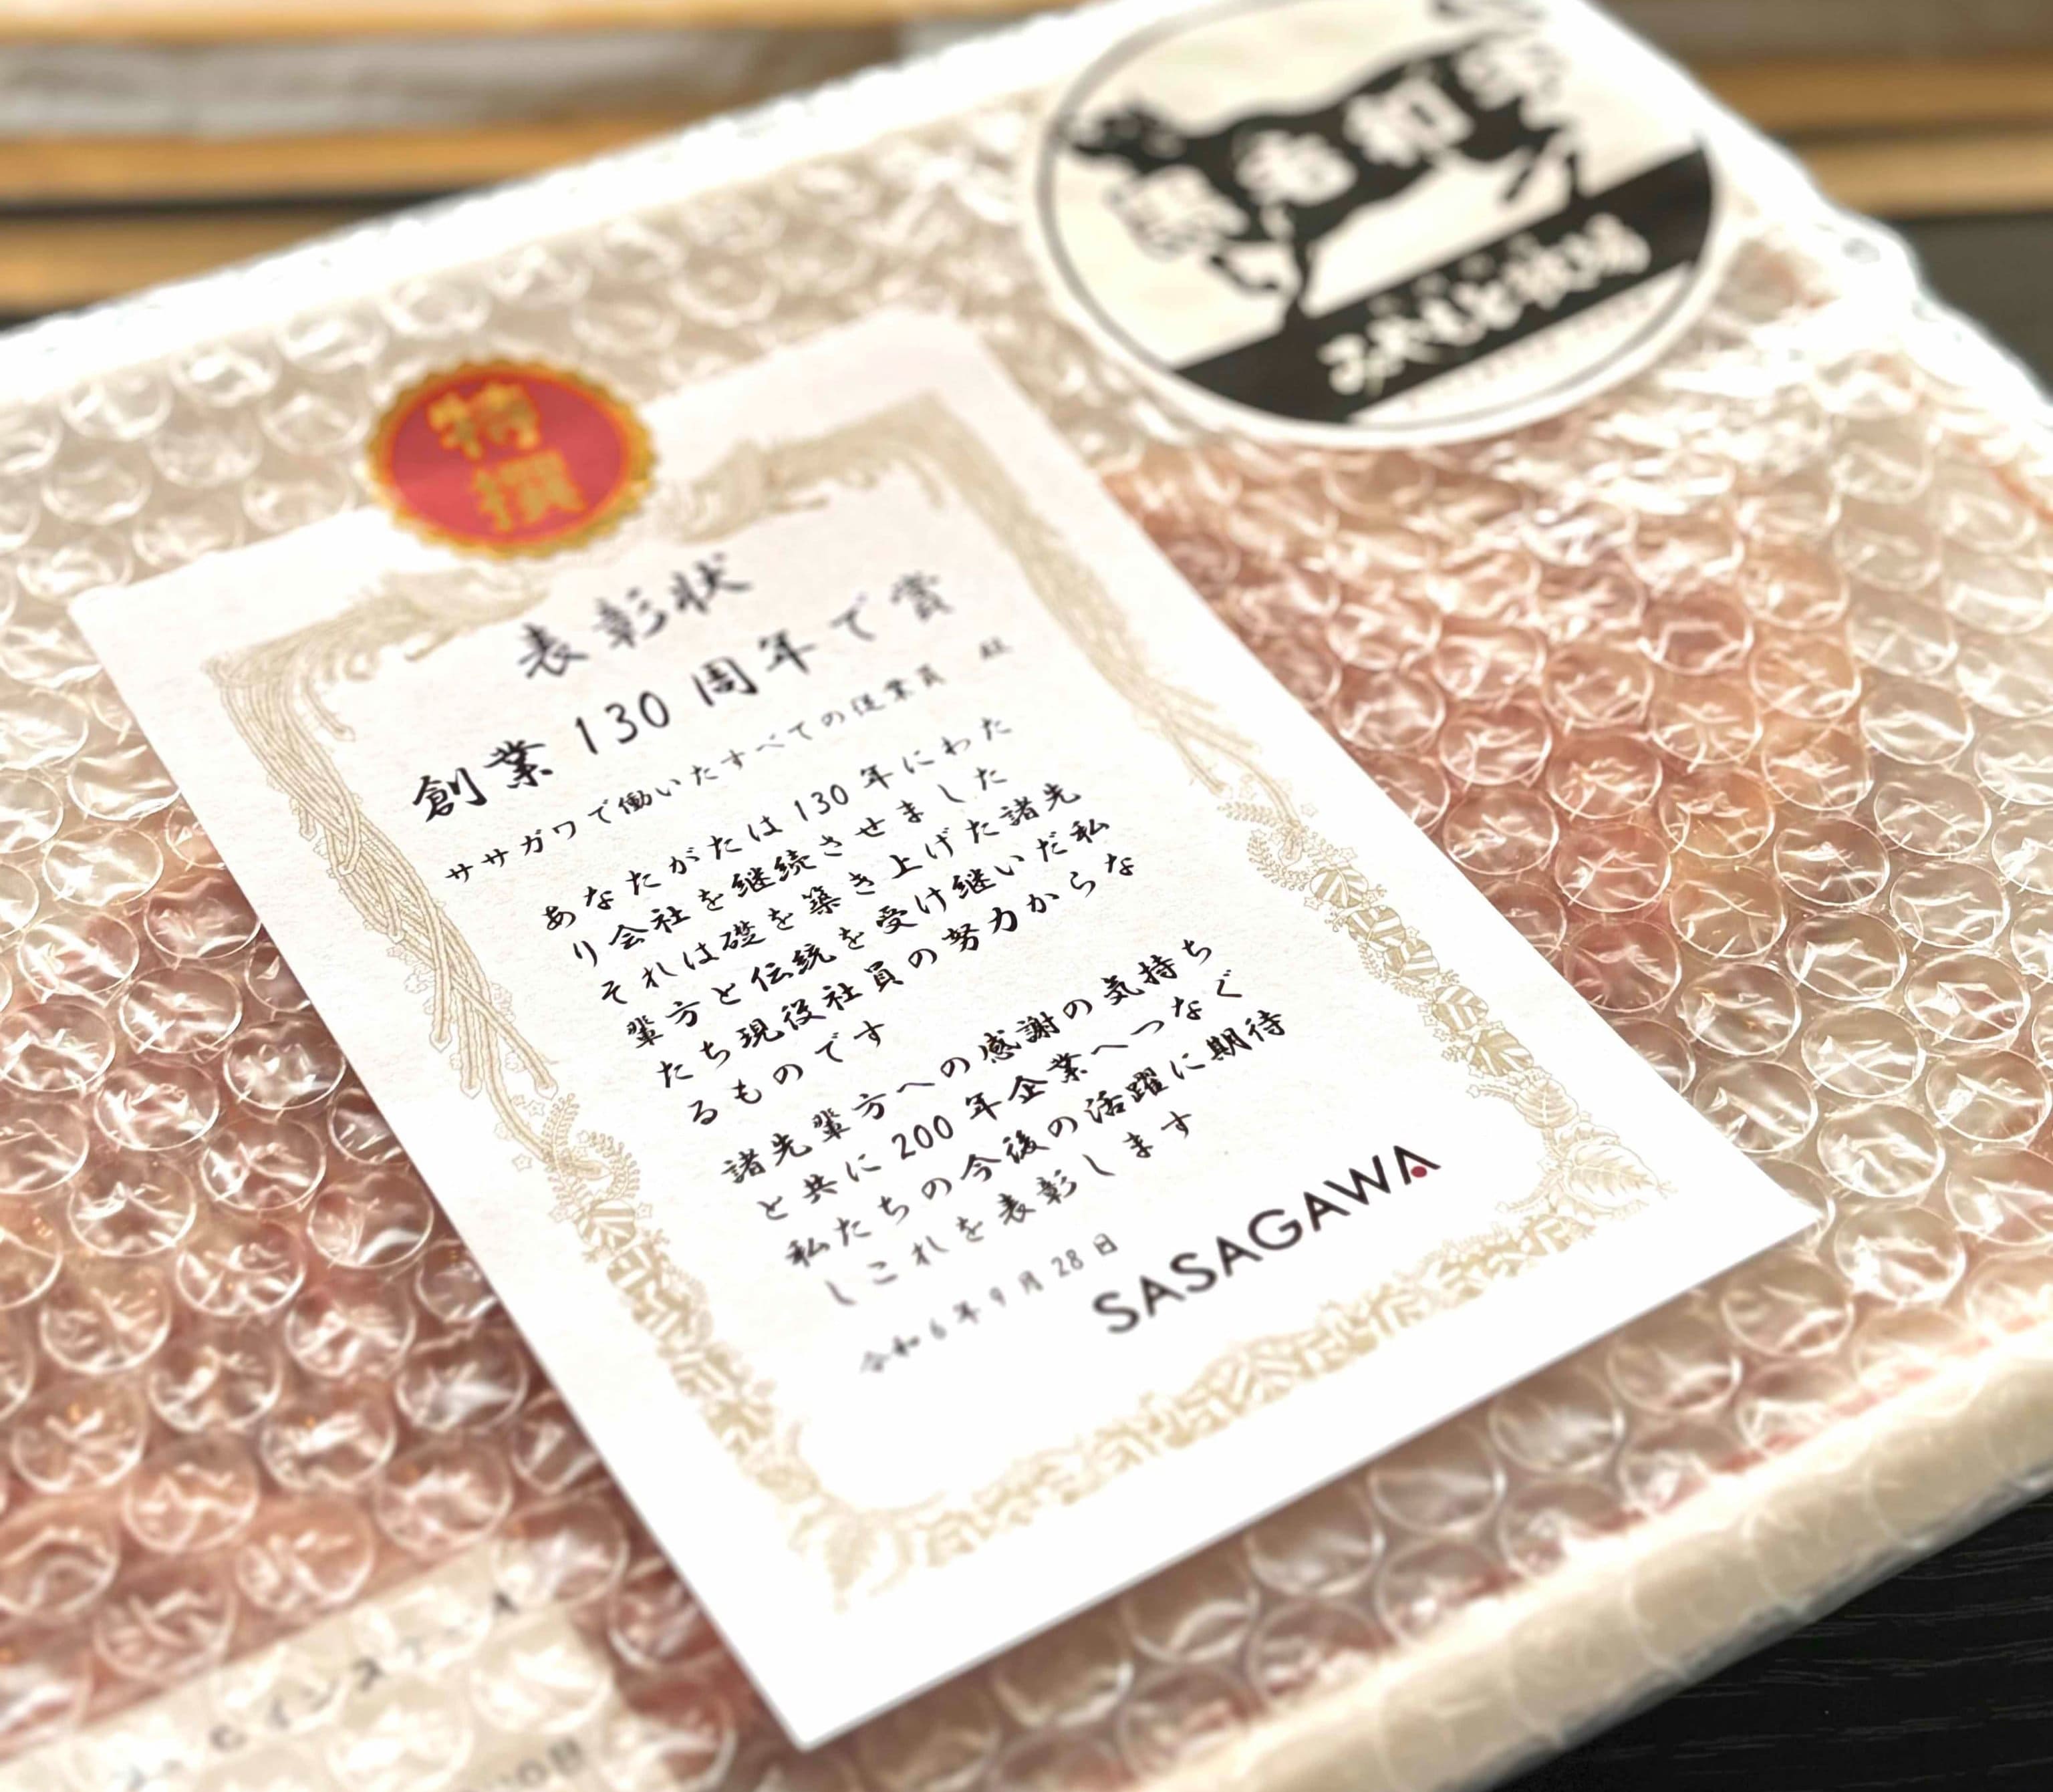 特
撰
表彰状
創業 130 周年で賞
ササガワで働いたすべての従業員 殿
あなたがたは 130 年にわた
り会社を継続させました
それは礎を築き上げた諸先
輩方と伝統を受け継いだ私
たち現役社員の努力からな
るものです
諸先輩方への感謝の気持ち
と共に 200 年企業へつなぐ
私たちの今後の活躍に期待
しこれを表彰します
令和 6 年 9 月 28 日
SASAGAWA